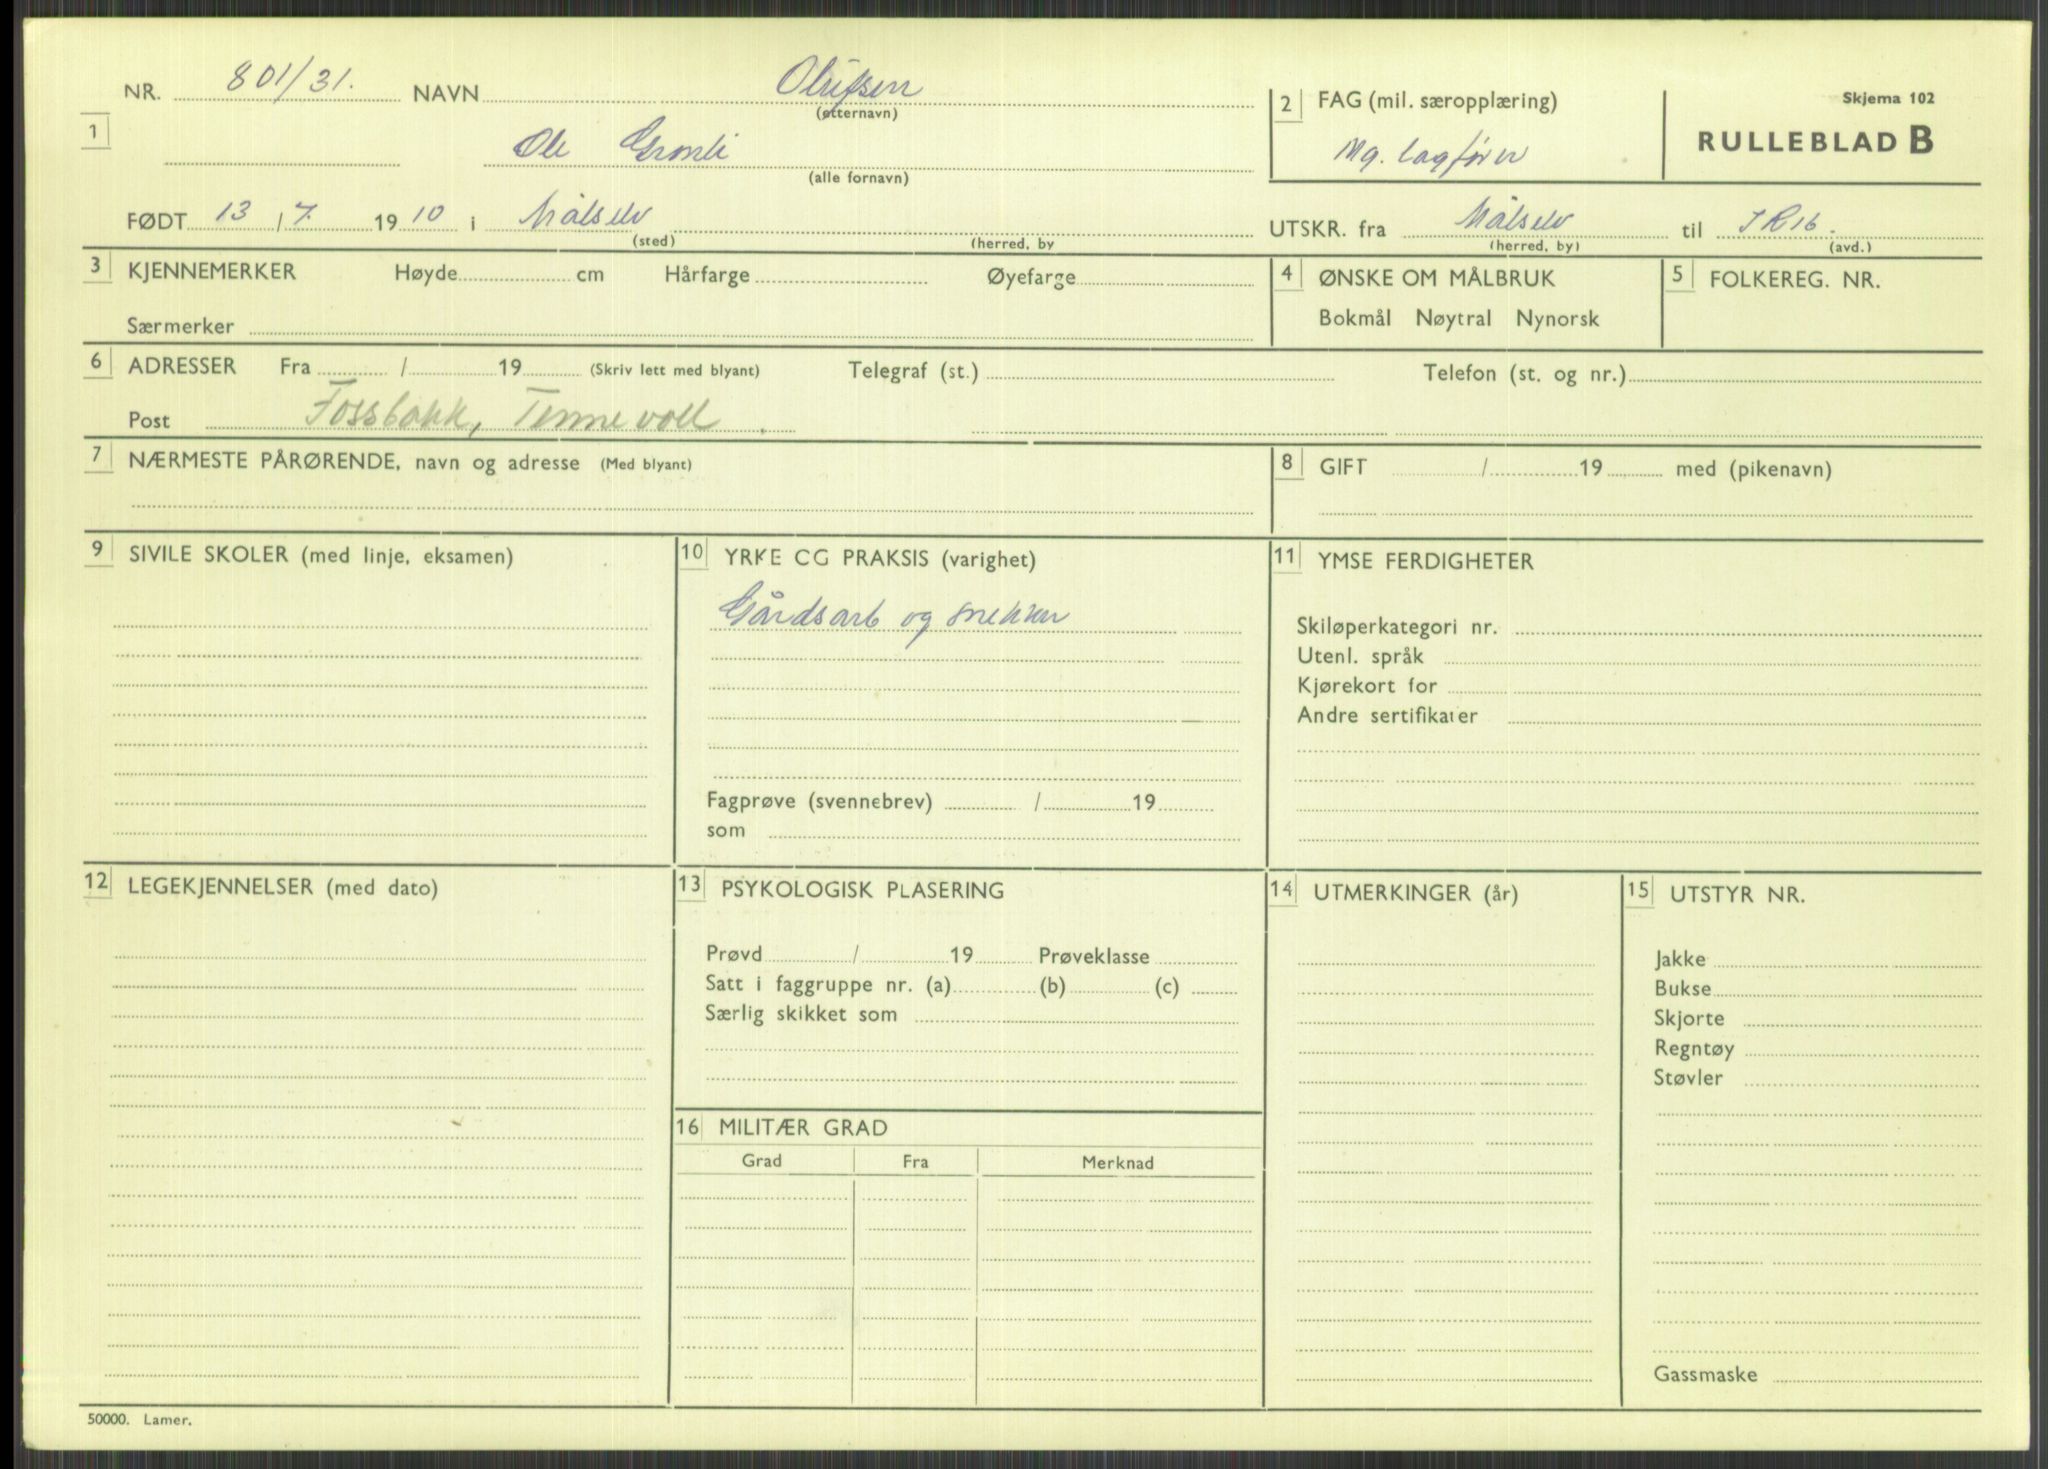 NR. 801/31. NAVN Olufsen
(etternavn)
1
Ole Gronli
(alle fornavn)
2 FAG (mil. særopplæring)
Mg. lagfører
Skjema 102
RULLEBLAD B
FØDT 13 / 7. 1910 i Målselv
(sted) (herred, by
UTSKR. fra Målselv til IR16.
(herred, by) (avd.)
3 KJENNEMERKER Høyde cm Hårfarge Øyefarge
Særmerker
4 ØNSKE OM MÅLBRUK
Bokmål Nøytral Nynorsk
5 FOLKEREG. NR.
6 ADRESSER Fra / 19 (Skriv lett med blyant) Telegraf (st.) Telefon (st. og nr.)
Post Fossbakk, Tennevoll.
7 NÆRMESTE PÅRØRENDE, navn og adresse (Med blyant)
8 GIFT / 19 med (pikenavn)
9 SIVILE SKOLER (med linje, eksamen)
10 YRKE CG PRAKSIS (varighet)
Gårdsarb og snekker
Fagprøve (svennebrev) / 19
som
11 YMSE FERDIGHETER
Skiløperkategori nr.
Utenl. språk
Kjørekort for
Andre sertifikater
12 LEGEKJENNELSER (med dato)
13 PSYKOLOGISK PLASERING
Prøvd / 19 Prøveklasse
Satt i faggruppe nr. (a) (b) (c)
Særlig skikket som
14 UTMERKINGER (år)
15 UTSTYR NR.
Jakke
Bukse
Skjorte
Regntøy
Støvler
Gassmaske
16 MILITÆR GRAD
Grad Fra Merknad
50000. Lamer.